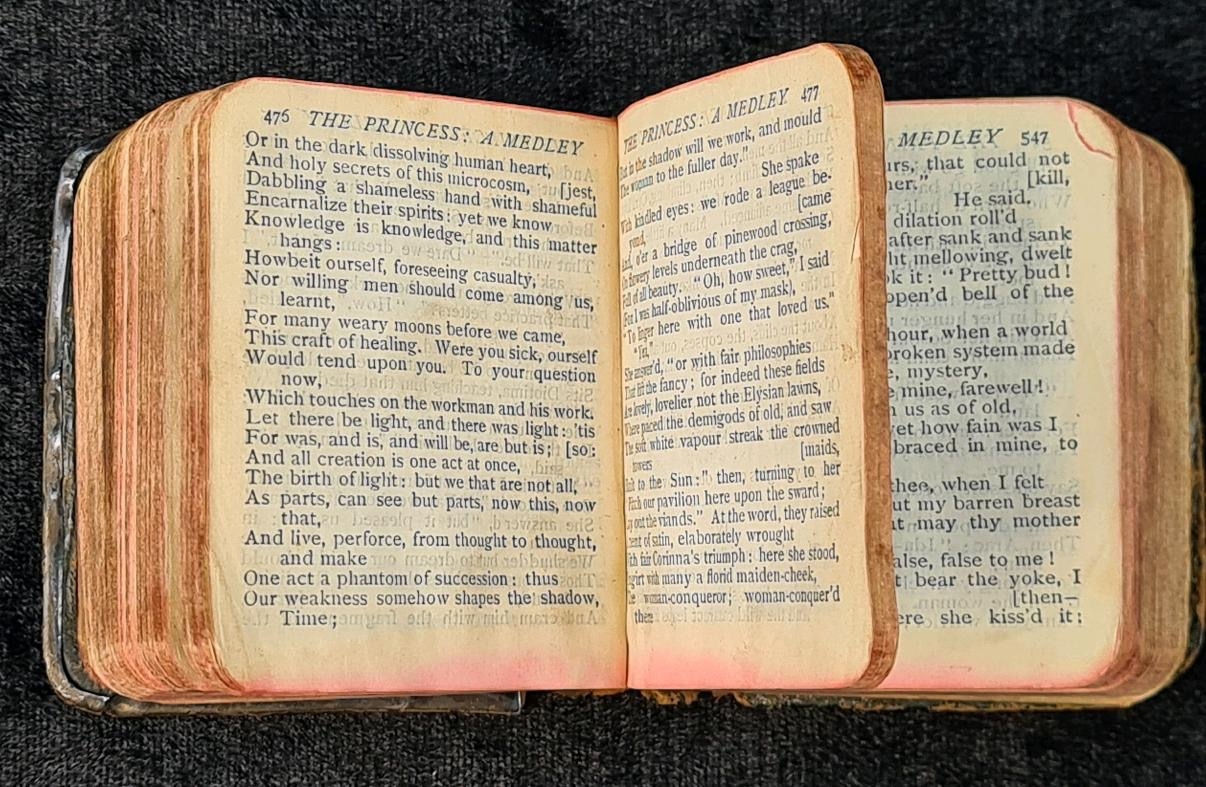 476 THE PRINCESS: A MEDLEY
Or in the dark dissolving human heart,
And holy secrets of this microcosm, [jest,
Dabbling a shameless hand with shameful
Encarnalize their spirits: yet we know
Knowledge is knowledge, and this matter
hangs:
Howbeit ourself, foreseeing casualty,
Nor willing men should come among us,
learnt,
For many weary moons before we came,
This craft of healing. Were you sick, ourself
Would tend upon you. To your question
now,
Which touches on the workman and his work.
Let there be light, and there was light: 'tis
For was, and is, and will be, are but is; [so:
And all creation is one act at once,
The birth of light: but we that are not all,
As parts, can see but parts, now this, now
that,
And live, perforce, from thought to thought,
and make
One act a phantom of succession: thus
Our weakness somehow shapes the shadow,
Time;
THE PRINCESS: A MEDLEY 477
in the shadow will we work, and mould
The woman to the fuller day."
She spake
With kindled eyes: we rode a league be-
yond, [came
And, o'er a bridge of pinewood crossing,
On flowery levels underneath the crag,
Full of all beauty. "Oh, how sweet," I said
For I was half-oblivious of my mask),
"To linger here with one that loved us."
"Yea,"
She answer'd, "or with fair philosophies
That lift the fancy; for indeed these fields
Are lovely, lovelier not the Elysian lawns,
Where paced the demigods of old, and saw
The soft white vapour streak the crowned
towers [maids,
to the Sun:" then, turning to her
Pitch our pavilion here upon the sward;
out the viands." At the word, they raised
tent of satin, elaborately wrought
fair Corinna's triumph: here she stood,
with many a florid maiden-cheek,
woman-conqueror; woman-conquer'd
there
MEDLEY 547
that could not
[kill,
He said,
dilation roll'd
after sank and sank
mellowing, dwelt
it: "Pretty bud!
bell of the
hour, when a world
system made
mystery,
mine, farewell!
us as of old,
how fain was I,
in mine, to
thee, when I felt
my barren breast
may thy mother
false to me!
bear the yoke, I
[then—
she kiss'd it;